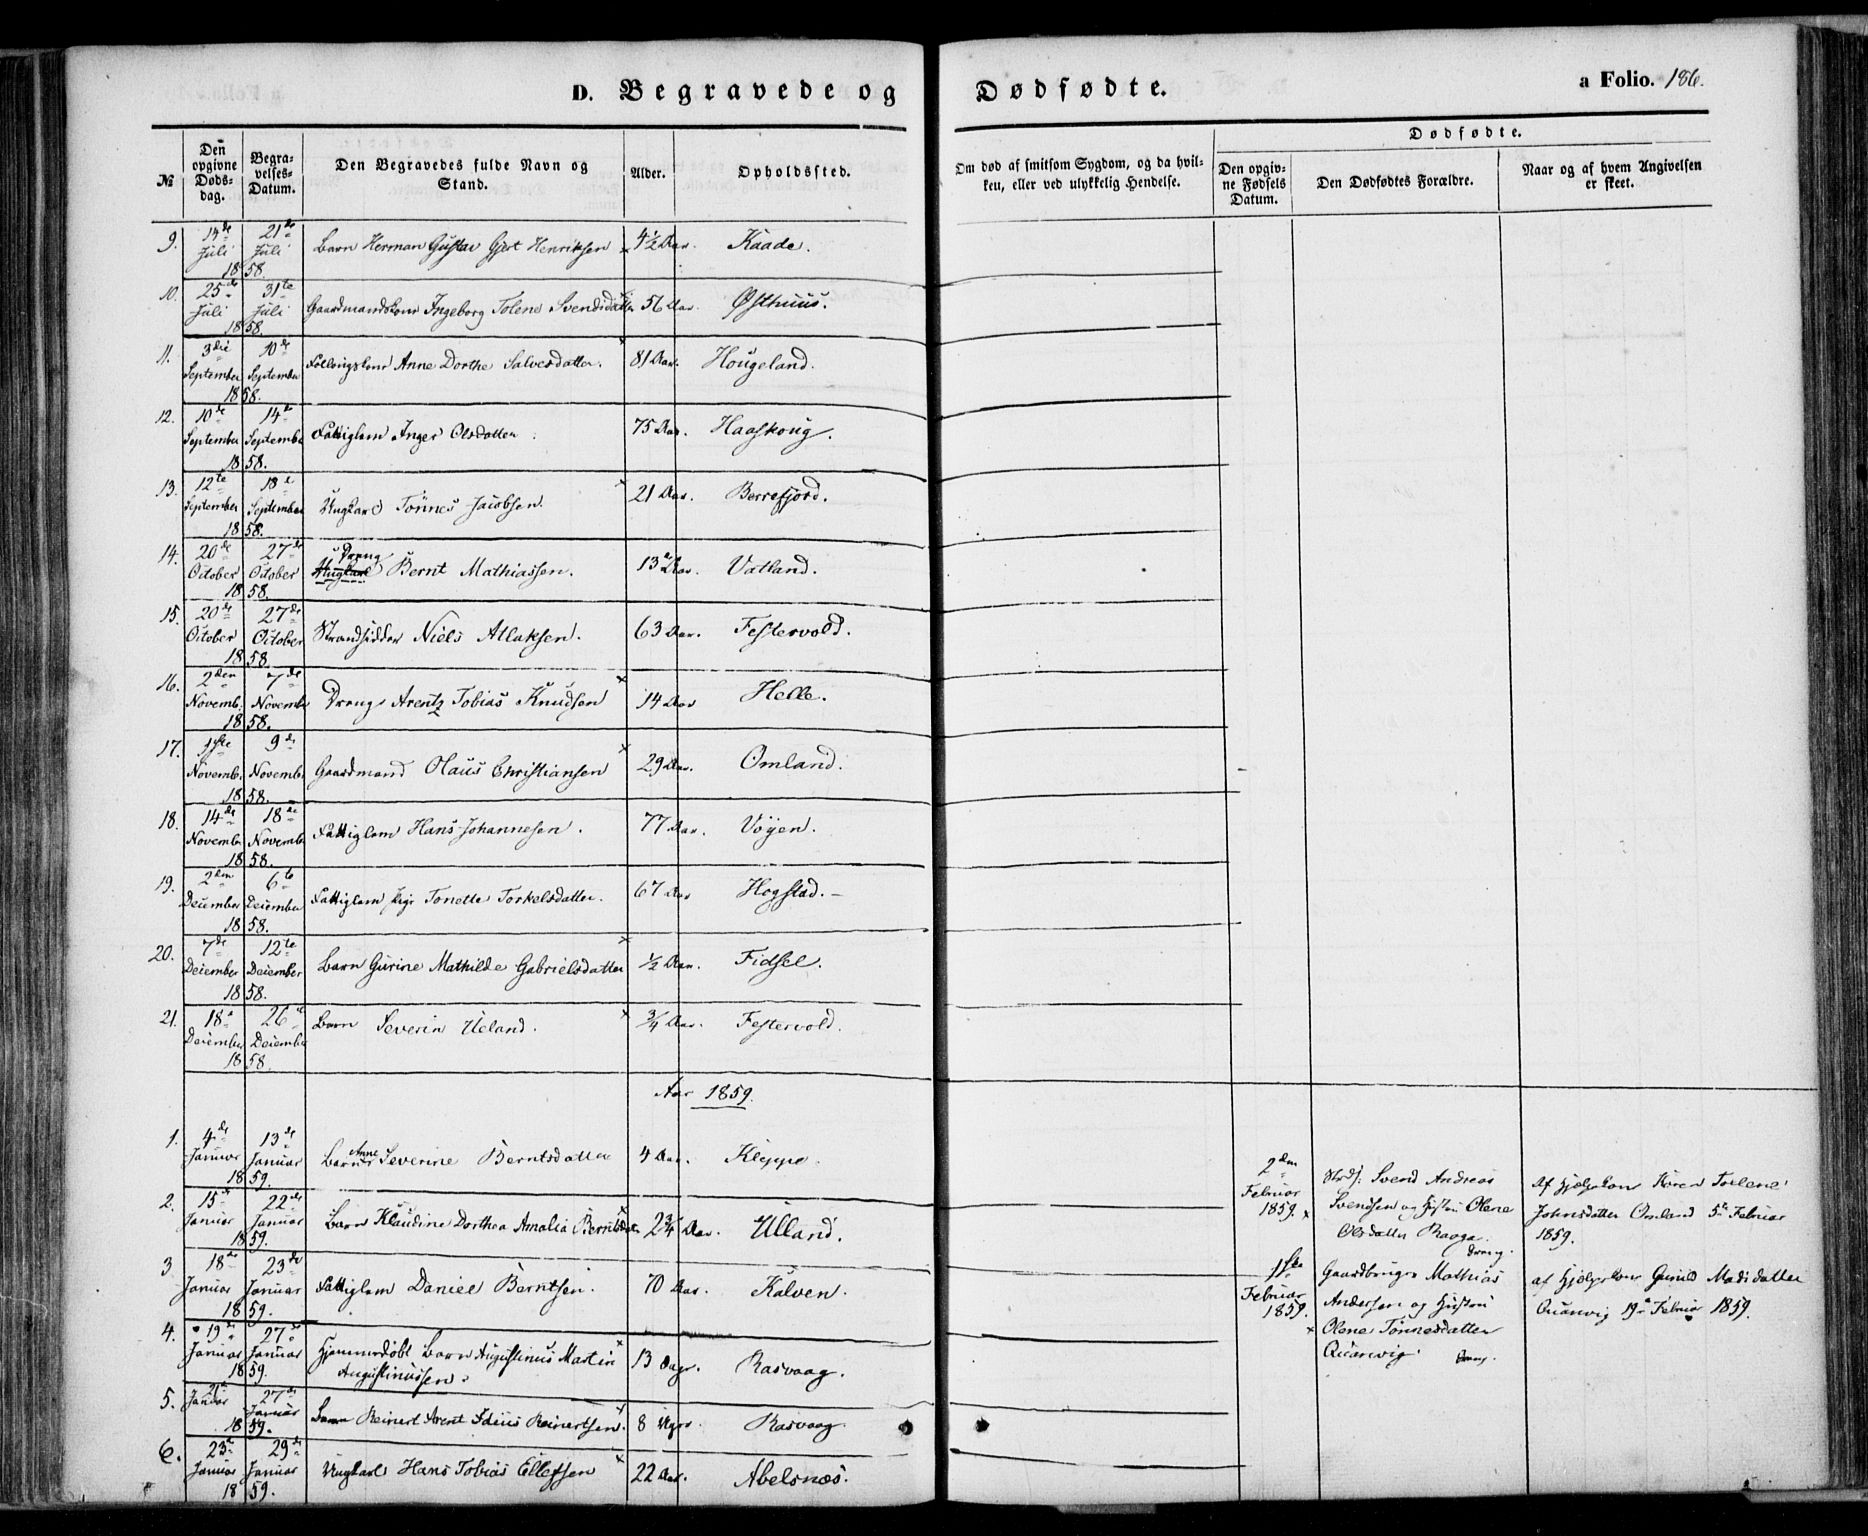 D. Begravede og Dødfødte. a Folio. 186.
№ Den opgivne Dødsdag. Begravelses-Datum. Den Begravedes fulde Navn og Stand. Alder. Opholdsfted.
Om død af smitsom Sygdom, og da hvilken, eller ved ulykkelig Hendelse.
Dødfødte.
Den opgivne Fødsels Datum. Den Dødfødtes Forældre. Naar og af hvem Angivelsen er skeet.
9. 14de Juli 21de Juli 1858. Barn Herman Gustav Gjert Henriksen 4½ Aar. Kaade.
10. 25de Juli 31te Juli 1858. Gaardmandskone Ingeborg Tolene Svendsdatter 56 Aar. Østhuus.
11. 3die September 10de September 1858. Anne Dorthe Salvesdatter. 81 Aar. Hougeland.
12. 10de September 14de September 1858. Fattiglem Inger Olsdatter. 75 Aar. Haaskoug.
13. 12te September 18de September 1858. Ungkarl Tönnes Jacobsen. 21 Aar. Berrefjord.
14. 20de October 27de October 1858. Dreng Ungkarl Bernt Mathiassen. 13 Aar. Vatland.
15. 20de October 27de October 1858. Strandsidder Niels Atlaksen. 63 Aar. Festervold.
16. 2den Novemb. 7de Novembr 1858. Dreng Arentz Tobias Knudsen 14 Aar Helle.
17. 1ste Novembr 9de Novembr 1858. Gaardmand Olaus Christiansen 29 Aar. Omland.
18. 14de Novembr 18de Novembr 1858. Fattiglem Hans Johannesen. 77 Aar. Vöyen.
19. 2den December 6te December 1858. Fattiglem Pige Tonette Torkelsdatter. 67 Aar Hogstad.
20. 7de December 12te December 1858. Barn Gurine Mathilde Gabrielsdatter ½ Aar. Fidsel.
21. 18de December 26de December 1858. Barn Severin Ueland. ¾ Aar. Festervold.
Aar 1859.
1. 4de Januar 13de Januar 1859. Barn Anne Severine Berntsdatter 4 Aar. Kleppe.
2. 15de Januar 22de Januar 1859. Barn Klaudine Dorthea Amalia Berntsd. 2¾ Aar. Ulland.
3 18de Januar 23de Januar 1859. Fattiglem Daniel Berntsen. 70 Aar. Kalven.
4. 19de Januar 27de Januar 1859. Hjemmedöbt Barn Augustinus Martin
Augustinussen. 13 Dage. Rasvaag.
5. 21de Januar 27de Januar 1859. Barn Reinert Arent Reinertsen. 8 Uger. Rasvaag
6. 23de Januar 29de Januar 1859. Ungkarl Hans Tobias Ellefsen 22 Aar. Abelsnæs.
2den Februar 1859.
Strds. Svend Andreas
Svendsen og Hustru Olene
Olsdatter Raaga.
Dreng.
Af Hjelpekone Karen Torlene
Johnsdatter Omland 5te Februar
1859.
11te Februar 1859.
Gaardbruger Mathias
Andersen og Hustru
Olene Tönnesdatter
Quanvig. Dreng.
af Hjelpekone Gunild Madsdatter
Quanvig 19de Februar 1859.